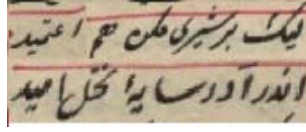 لیک بر شیری مکن هم اعتمید
اندر آ در سایهٔ نخل امید